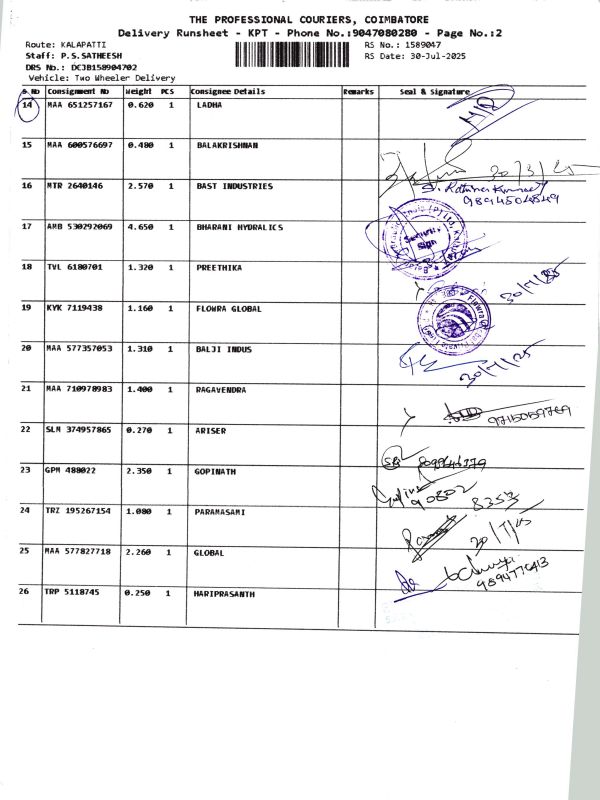 THE PROFESSIONAL COURIERS, COIMBATORE
Delivery Runsheet - KPT - Phone No.:9047080280 - Page No.:2
Route: KALAPATTI
RS No.: 1589047
Staff: P.S.SATHEESH
RS Date: 30-Jul-2025
DRS No.: DCJB158904702
Vehicle: Two Wheeler Delivery
S.No Consignment No Weight PCS Consignee Details Remarks Seal & Signature
14 MAA 651257167 0.620 1 LADHA
15 MAA 600576697 0.480 1 BALAKRISHNAN
16 MTR 2640146 2.570 1 BAST INDUSTRIES
9894504549
17 AMB 530292069 4.650 1 BHARANI HYDRALICS
Security
Sign
18 TVL 6180701 1.320 1 PREETHIKA
30/7/25
19 KYK 7119438 1.160 1 FLOWRA GLOBAL
Flowra
20 MAA 577357053 1.310 1 BALJI INDUS
30/7/25
21 MAA 710978983 1.400 1 RAGAVENDRA
9715059769
22 SLM 374957865 0.270 1 ARISER
23 GPM 488022 2.350 1 GOPINATH
90802
8353
24 TRZ 195267154 1.080 1 PARAMASAMI
25 MAA 577827718 2.260 1 GLOBAL
26 TRP 5118745 0.250 1 HARIPRASANTH